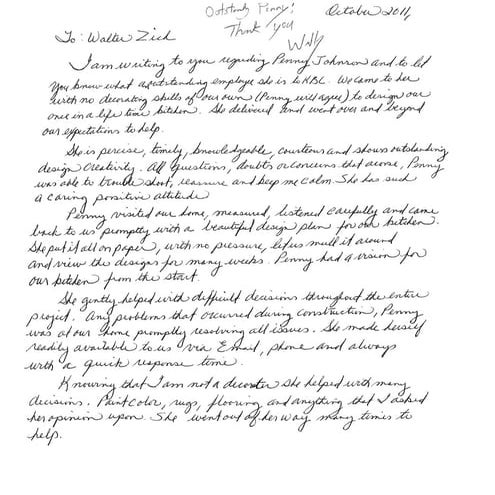 Outstandg Penny!
Thank you
Wally
October 2011,
To: Walter Zied
I am writing to you regarding Penny Johnson and to let
you know what a outstanding employe she is to KBC. We came to her
with no decorating skills of our own (Penny will agree) to design our
once in a life time kitchen. She delivered and went over and beyond
our expectations to help.
She is percise, timely, knowledgeable, courteous and shows outstanding
design creativity. All questions, doubts or concerns that arose, Penny
was able to trouble shoot, reassure and keep me calm. She has such
a caring positive attitude
Penny visited our home, measured, listened carefully and came
back to us promptly with a beautiful design plan for our kitchen.
She put it all on paper, with no pressure, let us mull it around
and view the designs for many weeks. Penny had a vision for
our kitchen from the start.
She gently helped with difficult decisions throughout the entire
project. Any problems that occurred during construction, Penny
was at our home promptly resolving all issues. She made herself
readily available to us via Email, phone and always
with a quick response time.
Knowing that I am not a decorator she helped with many
decisions. Paint color, rugs, flooring and anything that I asked
her opinion upon. She went out of her way many times to
help.